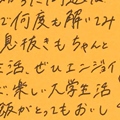 で何度も解いてみ
息抜きもちゃんと
生活、ぜひエンジョイ
で楽しい大学生活
飯がとってもおいし